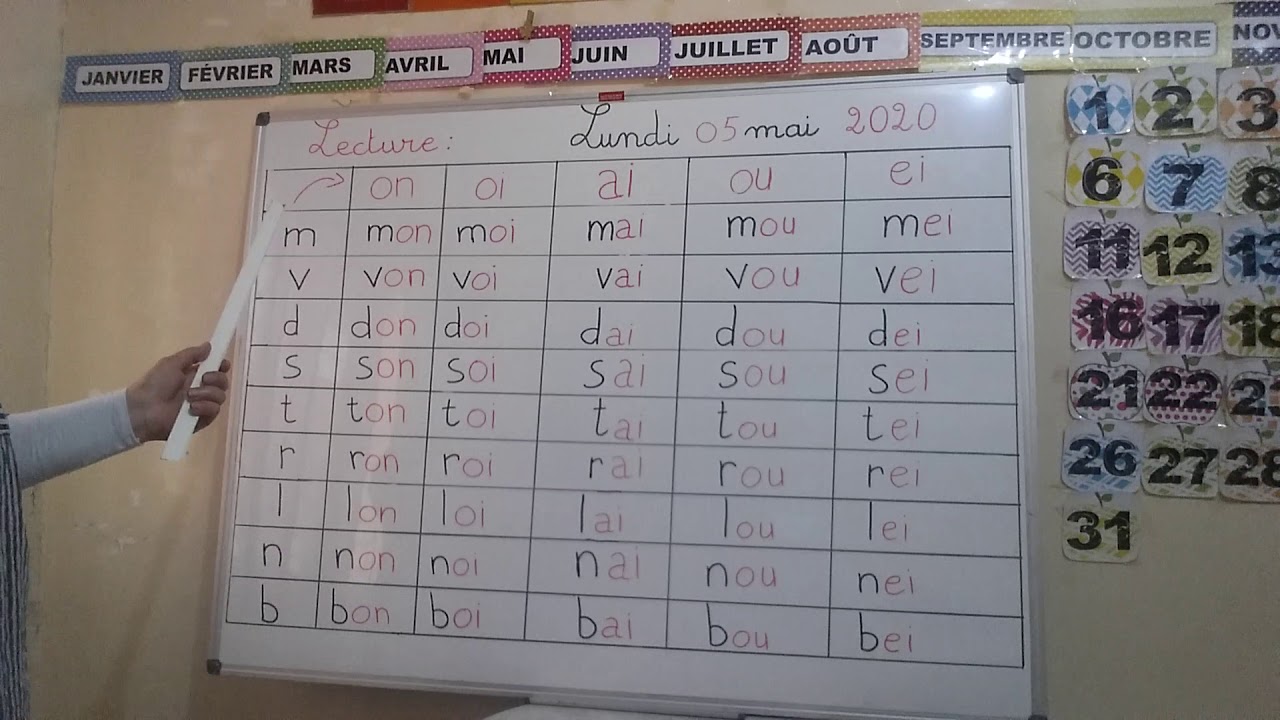 JANVIER FÉVRIER MARS AVRIL MAI JUIN JUILLET AOÛT SEPTEMBRE OCTOBRE NOV
Lecture : Lundi 05 mai 2020
on oi ai ou ei
m mon moi mai mou mei
v von voi vai vou vei
d don doi dai dou dei
s son soi sai sou sei
t ton toi tai tou tei
r ron roi rai rou rei
l lon loi lai lou lei
n non noi nai nou nei
b bon boi bai bou bei
1 2 3
6 7 8
11 12 13
16 17 18
21 22 23
26 27 28
31